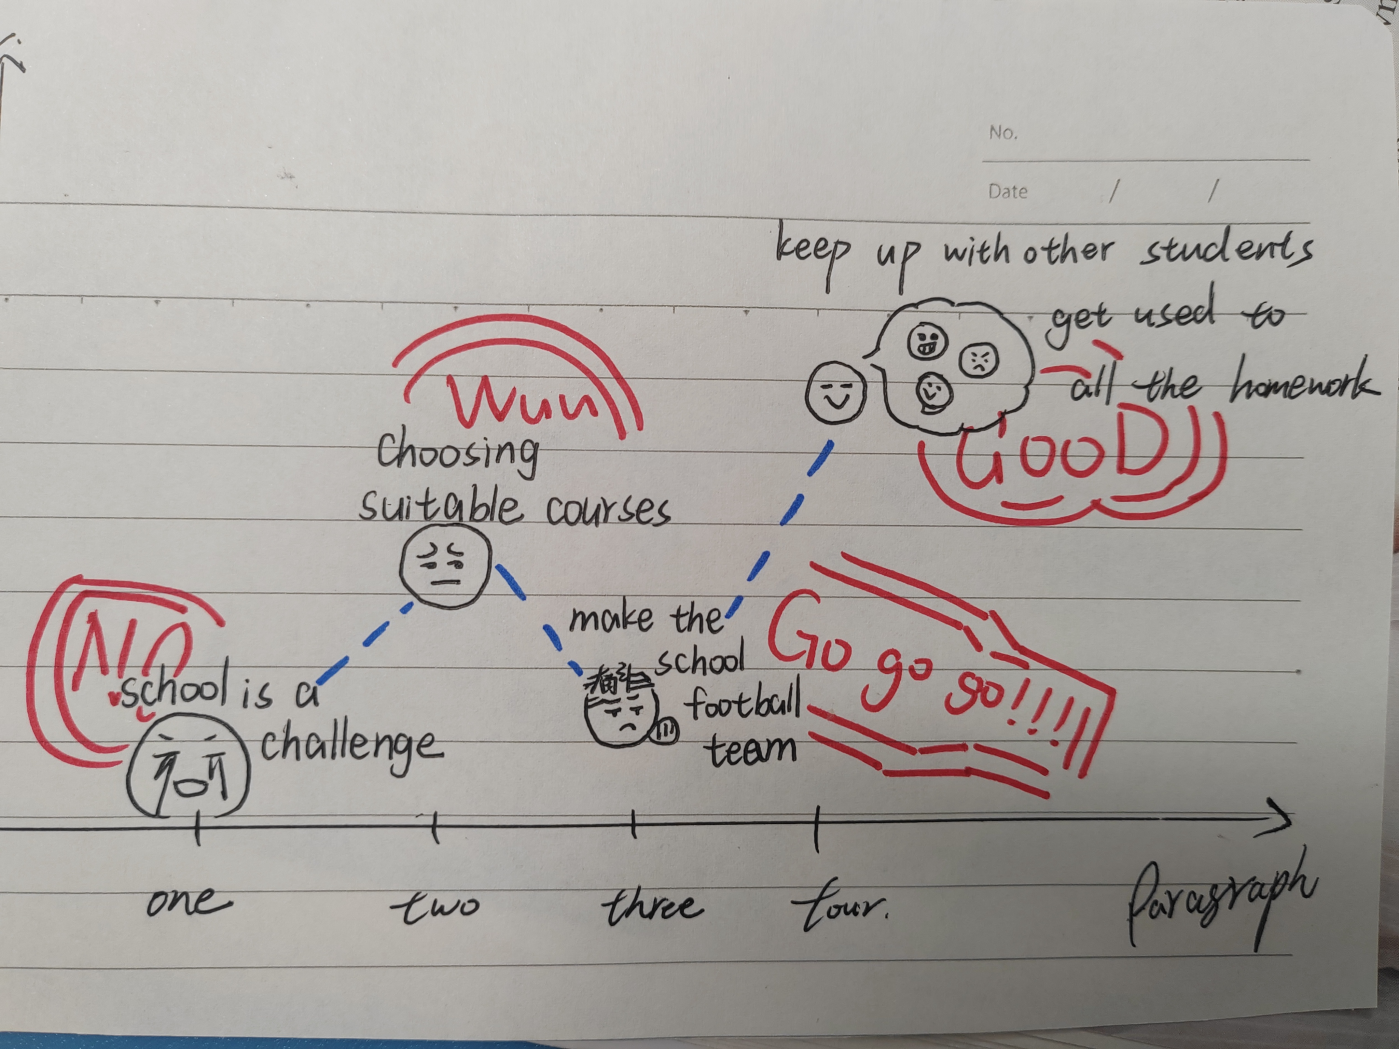 No.
Date / /
keep up with other students
get used to
all the homework
GOOD
Wuu
Choosing
suitable courses
make the
school
football
team
Go go go!!!!
No
school is a
challenge
one two three four.
Paragraph